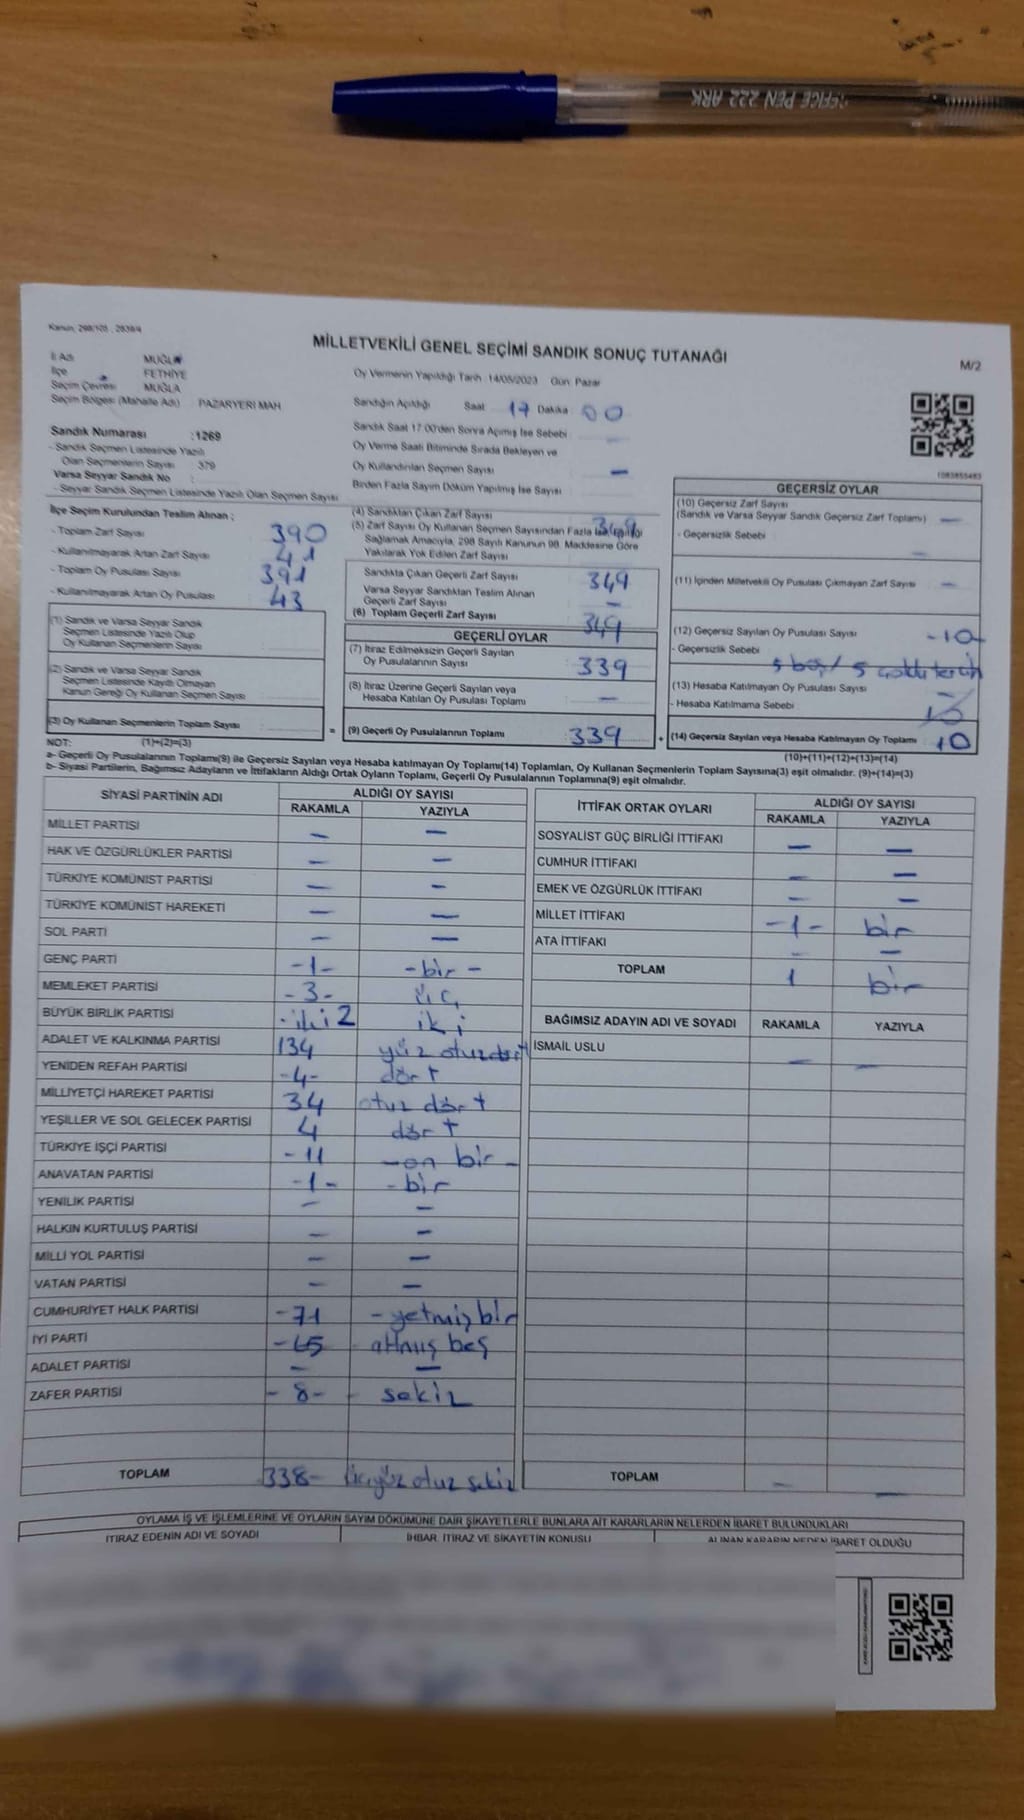 OFFICE PEN 222 ARK
Kanun, 298/105 , 2839/4
MİLLETVEKİLİ GENEL SEÇİMİ SANDIK SONUÇ TUTANAĞI
M/2
İl Adı MUĞLA
İlçe FETHİYE
Seçim Çevresi MUĞLA
Seçim Bölgesi (Mahalle Adı) PAZARYERİ MAH
Oy Vermenin Yapıldığı Tarih 14/05/2023 Gün: Pazar
Sandığın Açıldığı Saat 17 Dakika 00
Sandık Saat 17.00'den Sonra Açılmış İse Sebebi
Oy Verme Saati Bitiminde Sırada Bekleyen ve
Oy Kullandırılan Seçmen Sayısı —
Birden Fazla Sayım Döküm Yapılmış İse Sayısı
Sandık Numarası :1269
- Sandık Seçmen Listesinde Yazılı
Olan Seçmenlerin Sayısı : 379
Varsa Seyyar Sandık No
- Seyyar Sandık Seçmen Listesinde Yazılı Olan Seçmen Sayısı
İlçe Seçim Kurulundan Teslim Alınan ;
- Toplam Zarf Sayısı 390
- Kullanılmayarak Artan Zarf Sayısı 41
- Toplam Oy Pusulası Sayısı 391
- Kullanılmayarak Artan Oy Pusulası 43
(1) Sandık ve Varsa Seyyar Sandık
Seçmen Listesinde Yazılı Olup
Oy Kullanan Seçmenlerin Sayısı
(2) Sandık ve Varsa Seyyar Sandık
Seçmen Listesinde Kayıtlı Olmayan
Kanun Gereği Oy Kullanan Seçmen Sayısı
(3) Oy Kullanan Seçmenlerin Toplam Sayısı =
(4) Sandıktan Çıkan Zarf Sayısı 349
(5) Zarf Sayısı Oy Kullanan Seçmen Sayısından Fazla İse
Sağlamak Amacıyla, 298 Sayılı Kanunun 98. Maddesine Göre
Yakılarak Yok Edilen Zarf Sayısı
Sandıkta Çıkan Geçerli Zarf Sayısı 349
Varsa Seyyar Sandıktan Teslim Alınan
Geçerli Zarf Sayısı —
(6) Toplam Geçerli Zarf Sayısı 349
GEÇERLİ OYLAR
(7) İtiraz Edilmeksizin Geçerli Sayılan
Oy Pusulalarının Sayısı 339
(8) İtiraz Üzerine Geçerli Sayılan veya
Hesaba Katılan Oy Pusulası Toplamı —
(9) Geçerli Oy Pusulalarının Toplamı 339 +
1083855483
GEÇERSİZ OYLAR
(10) Geçersiz Zarf Sayısı
(Sandık ve Varsa Seyyar Sandık Geçersiz Zarf Toplamı) —
- Geçersizlik Sebebi —
(11) İçinden Milletvekili Oy Pusulası Çıkmayan Zarf Sayısı —
(12) Geçersiz Sayılan Oy Pusulası Sayısı -10-
- Geçersizlik Sebebi 5 boş / 5 çoklu tercih
(13) Hesaba Katılmayan Oy Pusulası Sayısı
- Hesaba Katılmama Sebebi 10
(14) Geçersiz Sayılan veya Hesaba Katılmayan Oy Toplamı 10
NOT: (1)+(2)=(3) (10)+(11)+(12)+(13)=(14)
a- Geçerli Oy Pusulalarının Toplamı(9) ile Geçersiz Sayılan veya Hesaba katılmayan Oy Toplamı(14) Toplamları, Oy Kullanan Seçmenlerin Toplam Sayısına(3) eşit olmalıdır. (9)+(14)=(3)
b- Siyasi Partilerin, Bağımsız Adayların ve İttifakların Aldığı Ortak Oyların Toplamı, Geçerli Oy Pusulalarının Toplamına(9) eşit olmalıdır.
SİYASİ PARTİNİN ADI ALDIĞI OY SAYISI
RAKAMLA YAZIYLA
MİLLET PARTİSİ — —
HAK VE ÖZGÜRLÜKLER PARTİSİ — —
TÜRKİYE KOMÜNİST PARTİSİ — —
TÜRKİYE KOMÜNİST HAREKETİ — —
SOL PARTİ — —
GENÇ PARTİ -1- -bir-
MEMLEKET PARTİSİ -3- üç
BÜYÜK BİRLİK PARTİSİ -iki 2 iki
ADALET VE KALKINMA PARTİSİ 134 yüz otuzdört
YENİDEN REFAH PARTİSİ -4- dört
MİLLİYETÇİ HAREKET PARTİSİ 34 otuz dört
YEŞİLLER VE SOL GELECEK PARTİSİ 4 dört
TÜRKİYE İŞÇİ PARTİSİ -11 -on bir-
ANAVATAN PARTİSİ -1- -bir
YENİLİK PARTİSİ — —
HALKIN KURTULUŞ PARTİSİ — —
MİLLİ YOL PARTİSİ — —
VATAN PARTİSİ — —
CUMHURİYET HALK PARTİSİ -71 -yetmiş bir
İYİ PARTİ -65 - altmış beş
ADALET PARTİSİ — —
ZAFER PARTİSİ -8- - sekiz
TOPLAM 338- üçyüz otuz sekiz
İTTİFAK ORTAK OYLARI ALDIĞI OY SAYISI
RAKAMLA YAZIYLA
SOSYALİST GÜÇ BİRLİĞİ İTTİFAKI — —
CUMHUR İTTİFAKI — —
EMEK VE ÖZGÜRLÜK İTTİFAKI — —
MİLLET İTTİFAKI -1- bir
ATA İTTİFAKI — —
TOPLAM 1 bir
BAĞIMSIZ ADAYIN ADI VE SOYADI RAKAMLA YAZIYLA
İSMAİL USLU — —
TOPLAM — —
OYLAMA İŞ VE İŞLEMLERİNE VE OYLARIN SAYIM DÖKÜMÜNE DAİR ŞİKAYETLERLE BUNLARA AİT KARARLARIN NELERDEN İBARET BULUNDUKLARI
İTİRAZ EDENİN ADI VE SOYADI İHBAR, İTİRAZ VE ŞİKAYETİN KONUSU ALINAN KARARIN NEDEN İBARET OLDUĞU